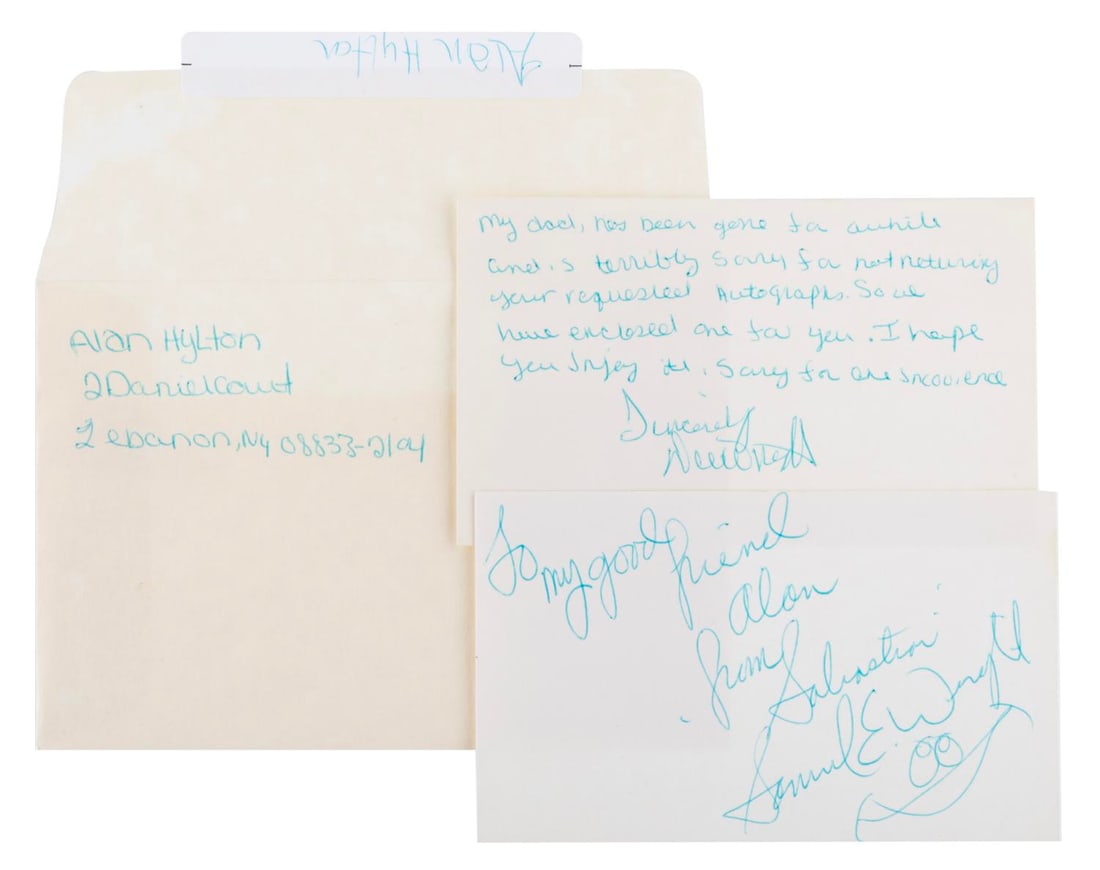 Alan Hylton
Alan Hylton
2 Daniel Court
Lebanon, NY 08833-2104
My dad, has been gone for awhile
and is terribly sorry for not returing
your requested Autographs. So we
have enclosed one for you. I hope
you Injoy it. Sorry for the
Sincerely
To my good friend
Alan
from
Sabastian
Samuel E. Wright